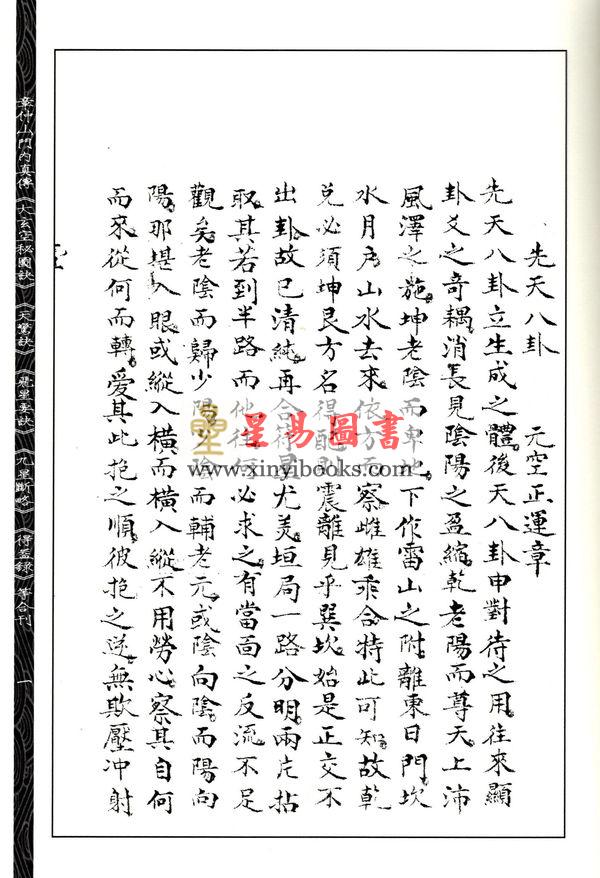 先天八卦　元空正運章
先天八卦立生成之體。後天八卦申對待之用。往來顯
卦爻之奇耦。消長見陰陽之盈縮。乾老陽而尊天上沛
風澤之施。坤老陰而卑之下作雷山之附離東日門。坎
水月户。山水去來。依方而察。雌雄乘合。特此可知。故乾
兌必須坤艮方名得配。震離見乎巽坎。始是正交。不
出卦。故已清純。再合待星。尤美。垣局一路分明。兩片拈
取。其若到半路而他往。何必求之。有當面之反流。不足
觀矣。老陰而歸少陽。少陰而輔老元。或陰向陰。而陽向
陽。那堪入眼。或縱入橫而橫入縱。不用勞心。察其自何
而來。從何而轉。愛其此抱之順。彼抱之逆。無欺壓冲射
章仲山門內真傳《大玄空秘圖訣》《天驚訣》《飛星要訣》《九星斷略》《得益錄》等合刊
一
星易圖書
www.xinyibooks.com